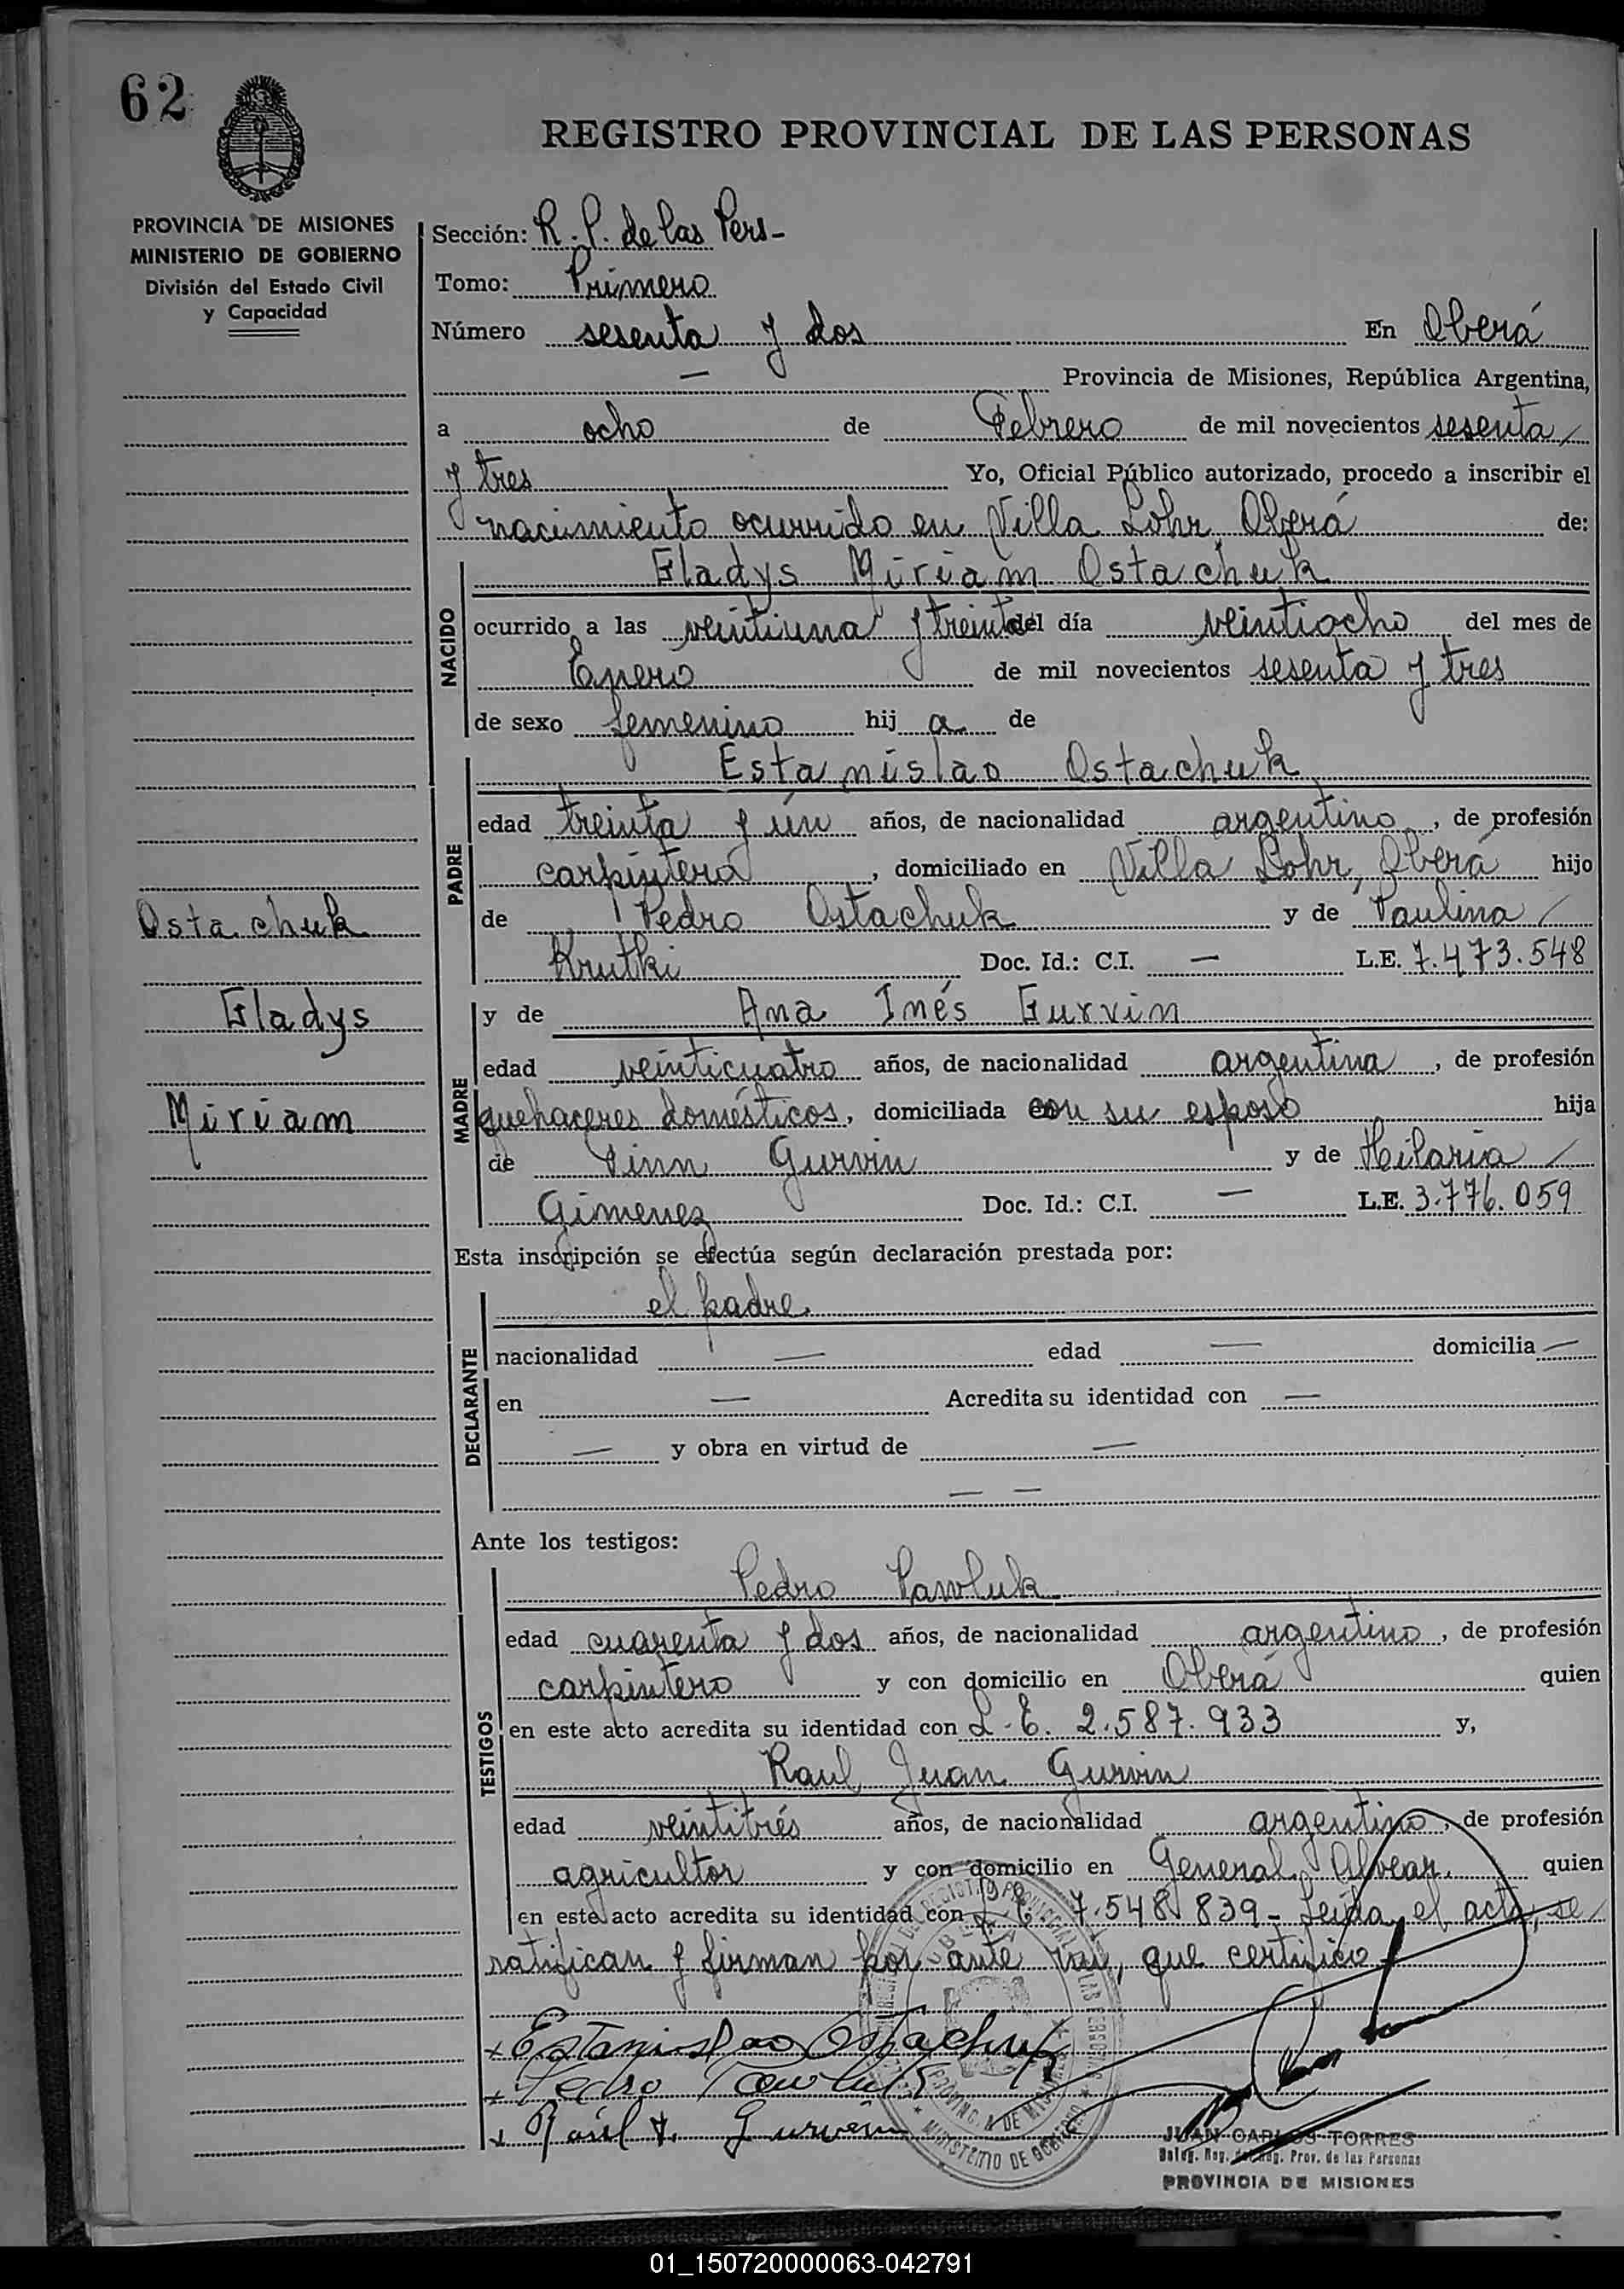 62
REGISTRO PROVINCIAL DE LAS PERSONAS
PROVINCIA DE MISIONES
MINISTERIO DE GOBIERNO
División del Estado Civil
y Capacidad
Sección: R. P. de las Pers-
Tomo: Primero
Número sesenta y dos En Oberá
— Provincia de Misiones, República Argentina,
a ocho de Febrero de mil novecientos sesenta
y tres Yo, Oficial Público autorizado, procedo a inscribir el
nacimiento ocurrido en Villa Lohr, Oberá de:
NACIDO
Gladys Miriam Ostachuk
ocurrido a las veintiuna y treinta del día veintiocho del mes de
Enero de mil novecientos sesenta y tres
de sexo femenino hij a de
PADRE
Estanislao Ostachuk
edad treinta y ún años, de nacionalidad argentino, de profesión
carpintero, domiciliado en Villa Lohr, Oberá hijo
de Pedro Ostachuk y de Paulina
Krutki Doc. Id.: C.I. — L.E. 7.473.548
Ostachuk
Gladys
Miriam
MADRE
y de Ana Inés Gurvin
edad veinticuatro años, de nacionalidad argentina, de profesión
quehaceres domésticos, domiciliada con su esposo hija
de Finn Gurvin y de Hilaria
Gimenez Doc. Id.: C.I. — L.E. 3.776.059
Esta inscripción se efectúa según declaración prestada por:
DECLARANTE
el padre
nacionalidad — edad — domicilia —
en — Acredita su identidad con —
— y obra en virtud de —
— —
Ante los testigos:
TESTIGOS
Pedro Pawluk
edad cuarenta y dos años, de nacionalidad argentino, de profesión
carpintero y con domicilio en Oberá quien
en este acto acredita su identidad con L.E. 2.587.933 y,
Raul Juan Gurvin
edad veintitrés años, de nacionalidad argentino, de profesión
agricultor y con domicilio en General Alvear. quien
en este acto acredita su identidad con L.E. 7.548.839- Leída el acta, se
ratifican y firman por ante mi, que certifico
x Estanislao Ostachuk
x Pedro Pawluk
x Raúl J. Gurvin
PROVINCIA DE MISIONES
MINISTERIO DE GOBIERNO
JUAN CARLOS TORRES
Prov. de las Personas
PROVINCIA DE MISIONES
01_150720000063-042791